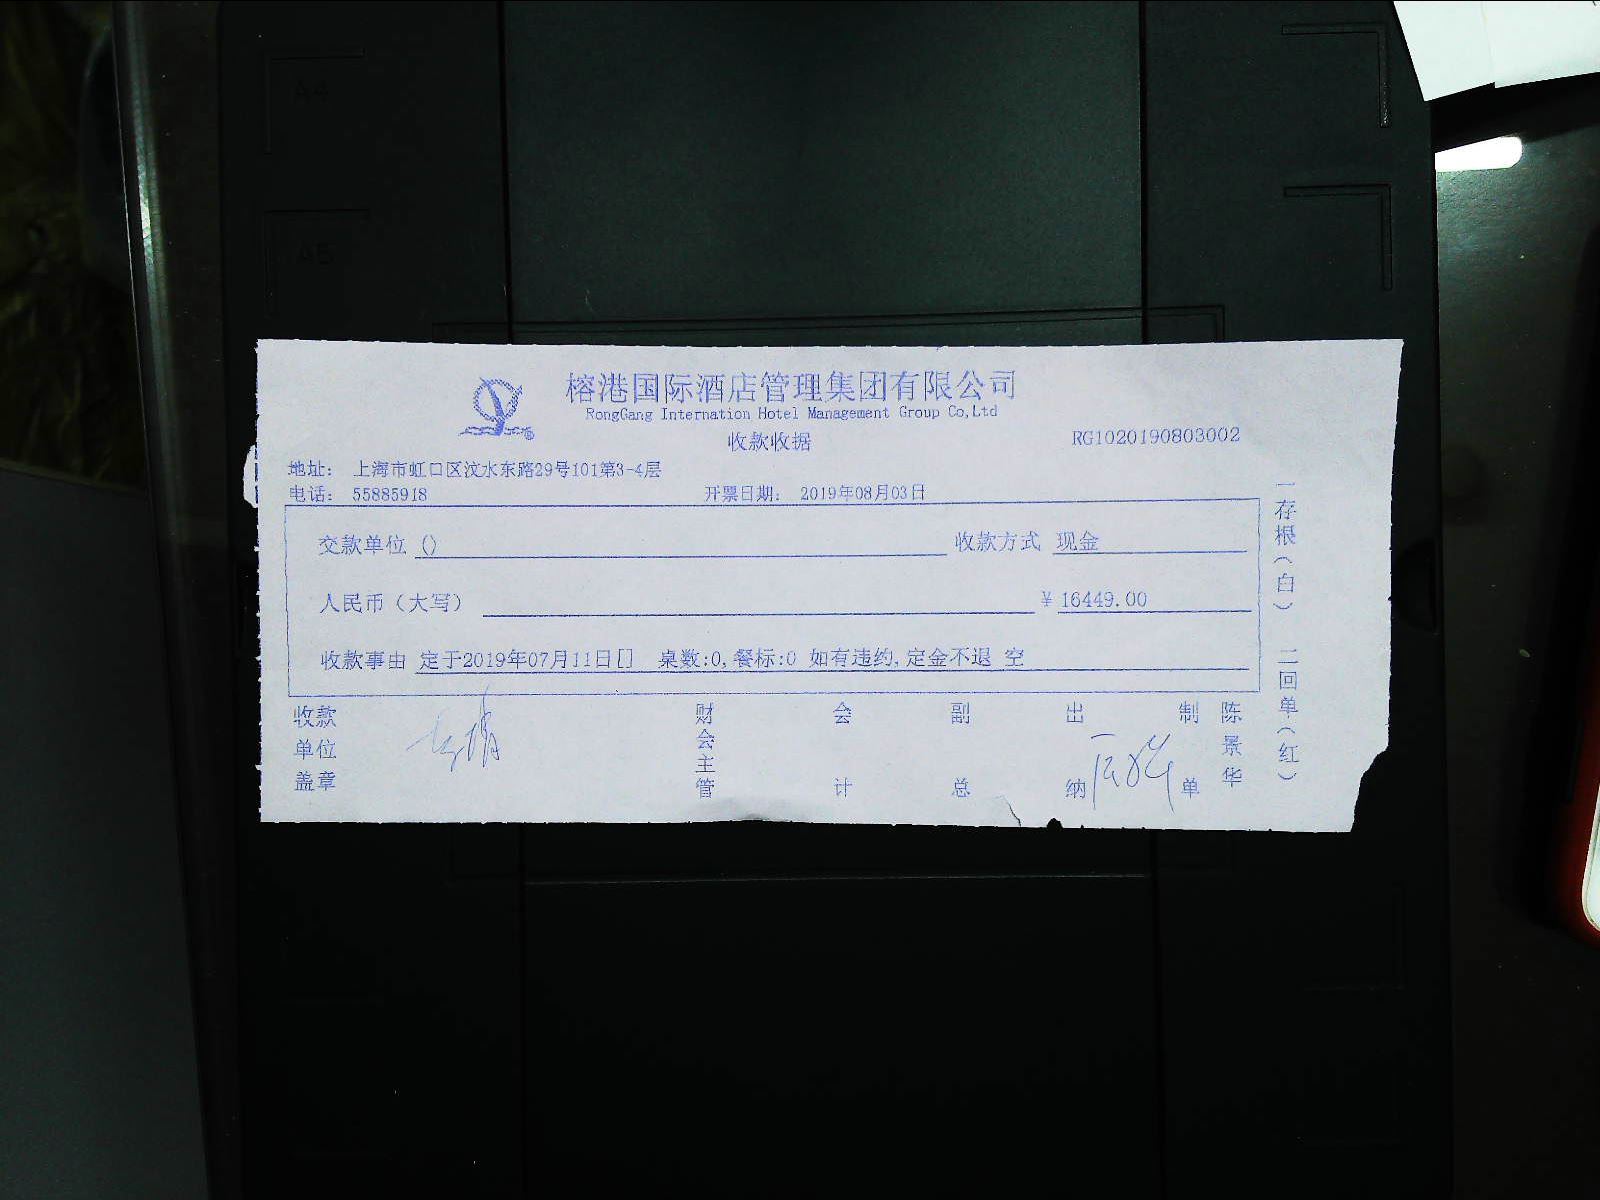 A4
A5
榕港国际酒店管理集团有限公司
RongGang Internation Hotel Management Group Co,Ltd
收款收据
RG1020190803002
地址： 上海市虹口区汶水东路29号101第3-4层
电话： 55885918 开票日期： 2019年08月03日
交款单位 () 收款方式 现金
人民币（大写） ￥16449.00
收款事由 定于2019年07月11日[] 桌数:0,餐标:0 如有违约,定金不退 空
收款单位盖章 财会主管 会计 副总 出纳 制单 陈景华
一存根（白） 二回单（红）